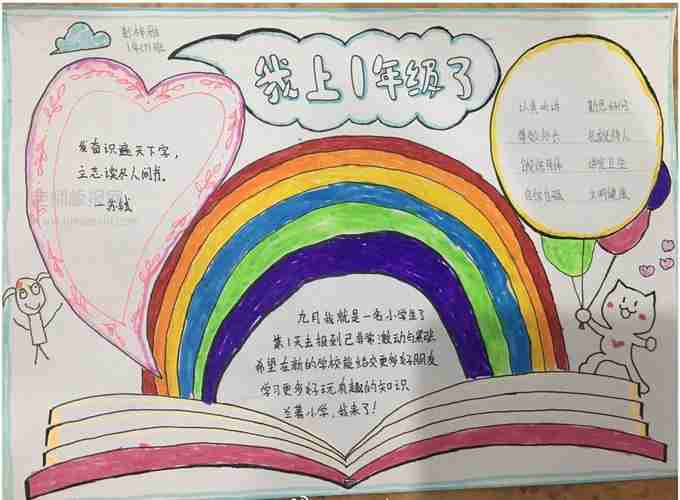 我上1年级了
发奋识遍天下字，
立志读尽人间书。
—苏轼
认真听讲 勤思好问
尊敬师长 礼貌待人
诚实守信 讲究卫生
自信自强 文明健康
九月我就是一名小学生了
第1天走进到己非常激动与紧张
希望在新的学校能结交更多好朋友
学习更多好玩有趣的知识
兰著小学，我来了！